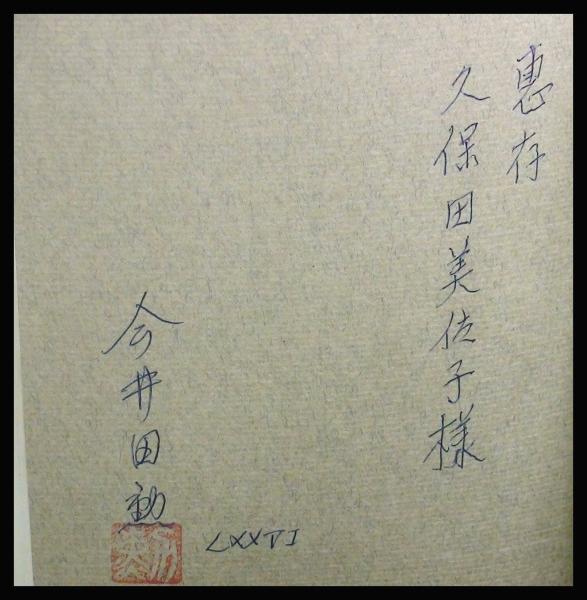 恵存
久保田美佐子様
今井田勳
LXXVI